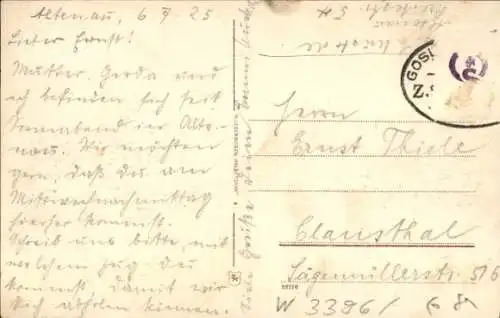 Altenau, 6 7 25
Lieber Ernst!
Mutter, Gerda und
ich befinden sich seit
Sonnabend in Alte-
nau. Wir möchten
gern, daß du am
Mittwochnachmittag
hierher kommst.
Schreib uns bitte, mit
welchem Zug du
kommst, damit wir
dich abholen können.
Viele Grüße
Herrn
Ernst Thiele
Clausthal
Sägemüllerstr. 516
W 3396/
GOS
Z.
Altenau